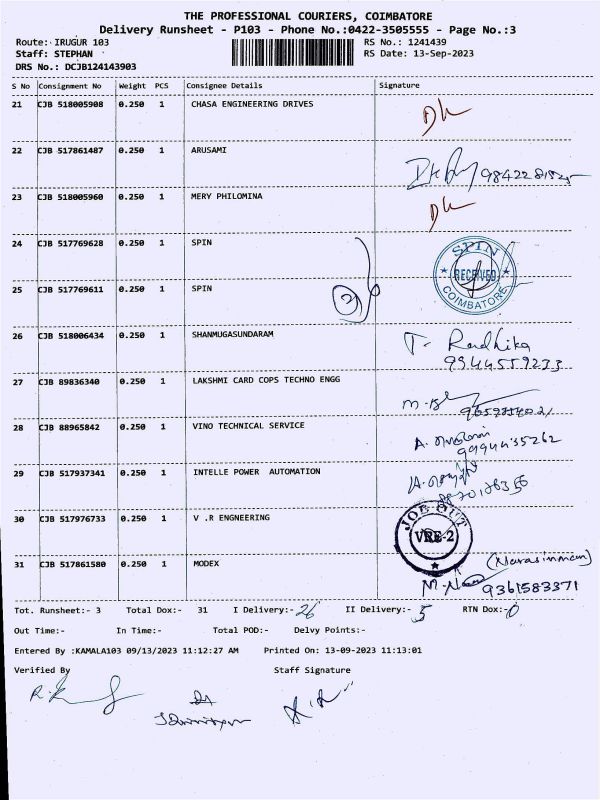 THE PROFESSIONAL COURIERS, COIMBATORE
Delivery Runsheet - P103 - Phone No.:0422-3505555 - Page No.:3
Route: IRUGUR 103 RS No.: 1241439
Staff: STEPHAN RS Date: 13-Sep-2023
DRS No.: DCJB124143903
S No Consignment No Weight PCS Consignee Details Signature
21 CJB 518005908 0.250 1 CHASA ENGINEERING DRIVES
22 CJB 517861487 0.250 1 ARUSAMI
23 CJB 518005960 0.250 1 MERY PHILOMINA
24 CJB 517769628 0.250 1 SPIN SPIN RECEIVED COIMBATORE
25 CJB 517769611 0.250 1 SPIN 2
26 CJB 518006434 0.250 1 SHANMUGASUNDARAM T. Radhika
9944559233
27 CJB 89836340 0.250 1 LAKSHMI CARD COPS TECHNO ENGG
28 CJB 88965842 0.250 1 VINO TECHNICAL SERVICE
9994435262
29 CJB 517937341 0.250 1 INTELLE POWER AUTOMATION
30 CJB 517976733 0.250 1 V .R ENGNEERING JOB OUT VRE-2
31 CJB 517861580 0.250 1 MODEX (Narasimman)
9361583371
Tot. Runsheet:- 3 Total Dox:- 31 I Delivery:- 26 II Delivery:- 5 RTN Dox:- 0
Out Time:- In Time:- Total POD:- Delvy Points:-
Entered By :KAMALA103 09/13/2023 11:12:27 AM Printed On: 13-09-2023 11:13:01
Verified By Staff Signature